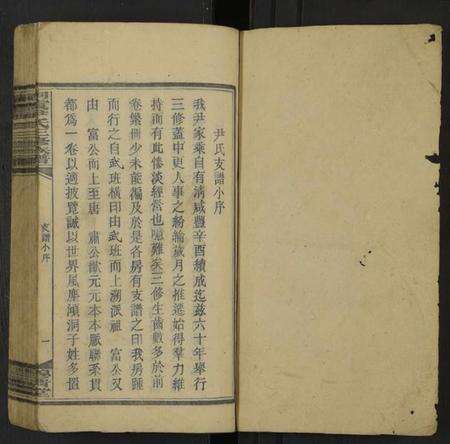 尹氏支譜小序
我尹家乘自有淸咸豐辛酉續成迄茲六十年舉行
三修蓋中更人事之紛綸歲月之推遷始得羣力維
持而有此慘淡經營也噫難矣三修生齒數多於前
卷繁冊少未能徧及於是各房有支譜之印我房踵
而行之自武班橫印由武班而上溯派祖 富公又
由 富公而上至唐 肅公獻元元本本脈聯系貫
都爲一卷以適披覽誠以世界風塵澒洞子姓多
支譜小序
一